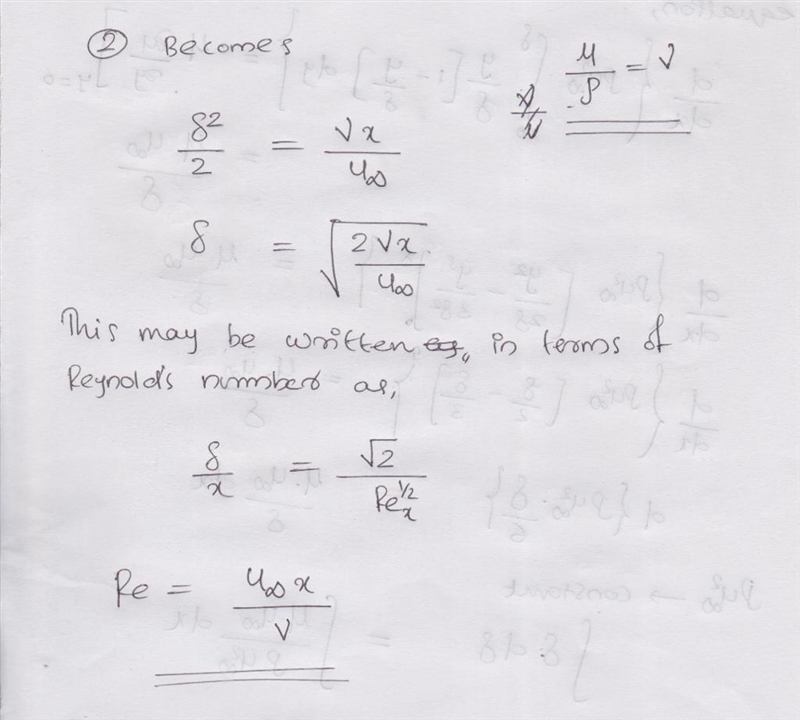 ② Becomes
μ/ρ = ν
δ²/2 = νx/u∞
δ = √(2νx/u∞)
This may be written in terms of
Reynold's number as,
δ/x = √2/Reₓ^1/2
Re = u∞ x/ν